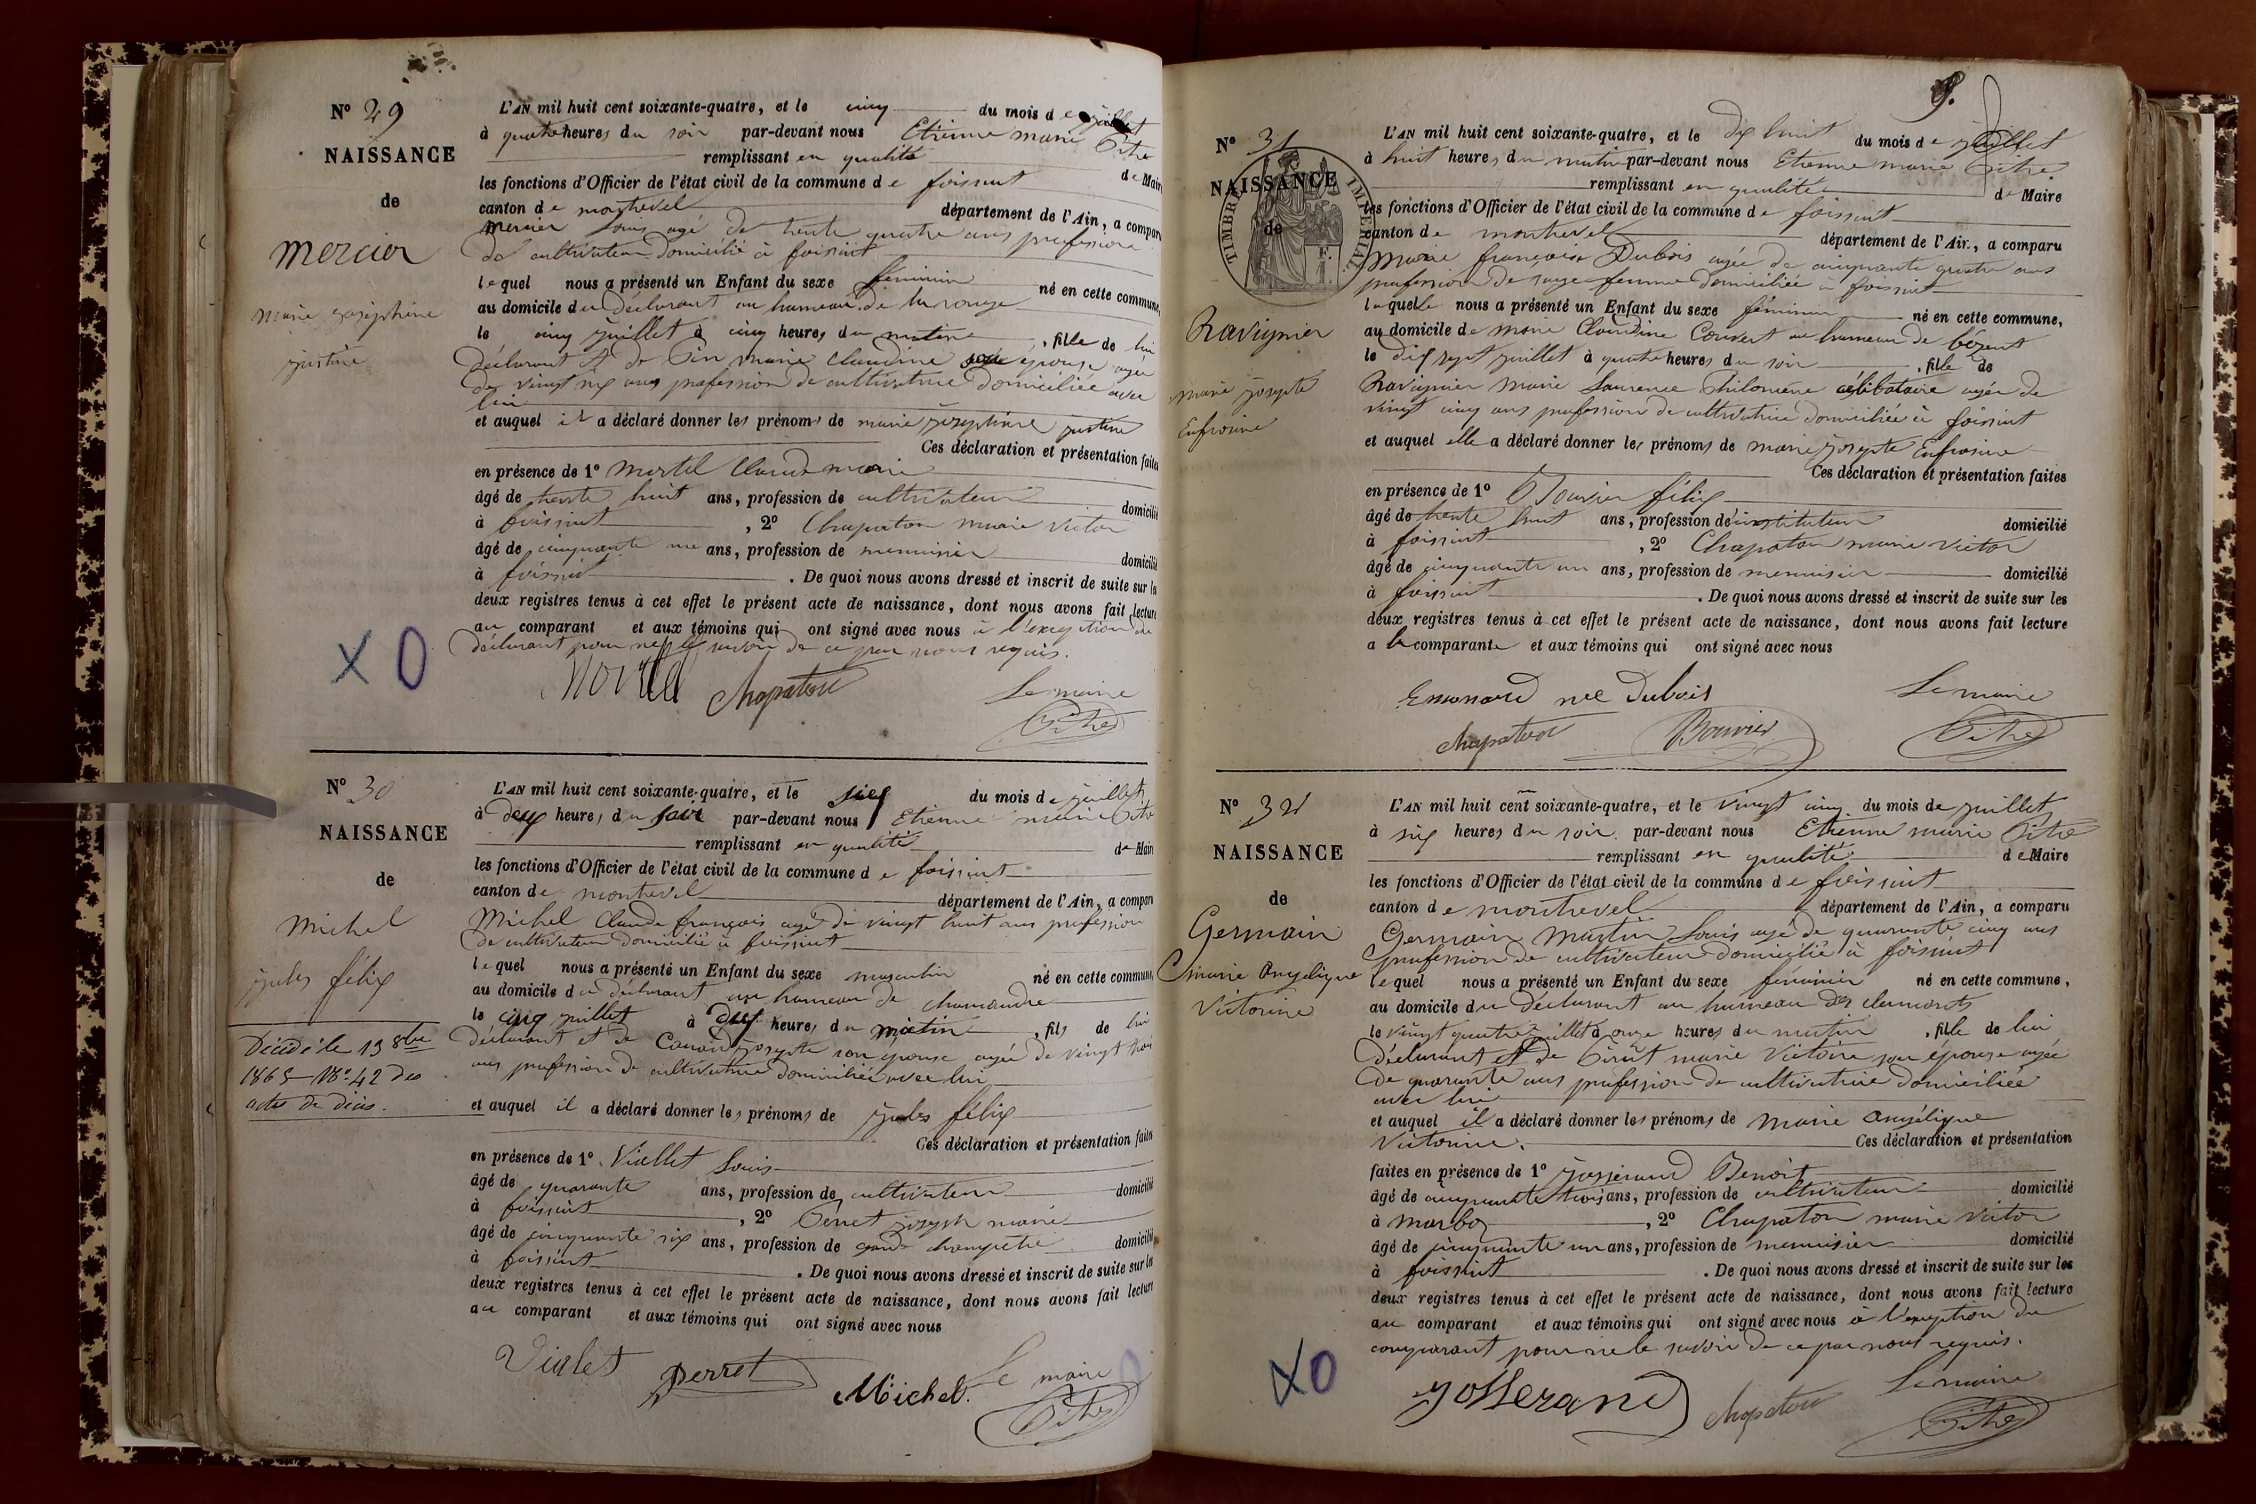 N° 29
NAISSANCE
de
mercier
marie joséphine
justine
L'AN mil huit cent soixante-quatre, et le cinq du mois de juillet
à quatre heures du soir par-devant nous Etienne marie Pitre
remplissant en qualité de Maire
les fonctions d'Officier de l'état civil de la commune de foissiat
canton de montrevel département de l'Ain, a comparu
mercier Louis agé de trente quatre ans profession
de cultivateur domicilié à foissiat
lequel nous a présenté un Enfant du sexe féminin né en cette commune,
au domicile du déclarant au hameau de la
le cinq juillet à cinq heures du matin, fille de lui
déclarant et de Pin marie claudine son épouse agée
de vingt six ans profession de cultivatrice domiciliée avec
lui
et auquel il a déclaré donner les prénoms de marie joséphine justine
Ces déclaration et présentation faites
en présence de 1° Mortel Claude marie
âgé de trente huit ans, profession de cultivateur domicilié
à foissiat, 2° Chapaton marie victor
âgé de cinquante un ans, profession de menuisier domicilié
à foissiat. De quoi nous avons dressé et inscrit de suite sur les
deux registres tenus à cet effet le présent acte de naissance, dont nous avons fait lecture
au comparant et aux témoins qui ont signé avec nous à l'exception du
déclarant pour ne le savoir de ce par nous requis.
Mortel Chapaton Le maire
Pitre
X O
N° 30
NAISSANCE
de
Michel
jules félix
Décédé le 13 8bre
1865 N° 42 des
actes de décès.
L'AN mil huit cent soixante-quatre, et le six du mois de juillet
à deux heures du soir par-devant nous Etienne marie Pitre
remplissant en qualité de Maire
les fonctions d'Officier de l'état civil de la commune de foissiat
canton de montrevel département de l'Ain, a comparu
Michel Claude françois agé de vingt huit ans profession
de cultivateur domicilié à foissiat
lequel nous a présenté un Enfant du sexe masculin né en cette commune,
au domicile du déclarant au hameau de chamandre
le cinq juillet à dix heures du matin, fils de lui
déclarant et de josephte son épouse agée de vingt trois
ans profession de cultivatrice domiciliée avec lui
et auquel il a déclaré donner les prénoms de jules félix
Ces déclaration et présentation faites
en présence de 1° Viallet Louis
âgé de quarante ans, profession de cultivateur domicilié
à foissiat, 2° Perret joseph marie
âgé de cinquante six ans, profession de garde champetre domicilié
à foissiat. De quoi nous avons dressé et inscrit de suite sur les
deux registres tenus à cet effet le présent acte de naissance, dont nous avons fait lecture
au comparant et aux témoins qui ont signé avec nous
Vialet Perret Michel. Le maire
Pitre
9.
N° 31
NAISSANCE
de
TIMBRE IMPERIAL
Ravignier
marie josepte
Enfrosine
L'AN mil huit cent soixante-quatre, et le dix huit du mois de juillet
à huit heures du matin par-devant nous Etienne marie Pitre
remplissant en qualité de Maire
les fonctions d'Officier de l'état civil de la commune de foissiat
canton de montrevel département de l'Ain, a comparu
marie françoise Dubois agée de cinquante quatre ans
profession de sage femme domiciliée à foissiat
laquelle nous a présenté un Enfant du sexe féminin né en cette commune,
au domicile de marie Claudine Convert au hameau de bézent
le dix sept juillet à quatre heures du soir, fille de
Ravignier marie Laurence Philomène célibataire agée de
vingt cinq ans profession de cultivatrice domiciliée à foissiat
et auquel elle a déclaré donner les prénoms de marie josepte Enfrosine
Ces déclaration et présentation faites
en présence de 1° Bouvier félix
âgé de trente huit ans, profession d'instituteur domicilié
à foissiat, 2° Chapaton marie victor
âgé de cinquante un ans, profession de menuisier domicilié
à foissiat. De quoi nous avons dressé et inscrit de suite sur les
deux registres tenus à cet effet le présent acte de naissance, dont nous avons fait lecture
a la comparante et aux témoins qui ont signé avec nous
Emonard née Dubois Le maire
Chapaton Bouvier Pitre
N° 32
NAISSANCE
de
Germain
marie Angélique
Victorine
L'AN mil huit cent soixante-quatre, et le vingt cinq du mois de juillet
à six heures du soir par-devant nous Etienne marie Pitre
remplissant en qualité de Maire
les fonctions d'Officier de l'état civil de la commune de foissiat
canton de montrevel département de l'Ain, a comparu
Germain Martin Louis agé de quarante cinq ans
profession de cultivateur domicilié à foissiat
lequel nous a présenté un Enfant du sexe féminin né en cette commune,
au domicile du déclarant au hameau des clemants
le vingt quatre juillet à onze heures du matin, fille de lui
déclarant et de marie Victoire son épouse agée
de quarante ans profession de cultivatrice domiciliée
avec lui
et auquel il a déclaré donner les prénoms de marie Angélique
Victorine. Ces déclaration et présentation
faites en présence de 1° josserand Benoit
âgé de cinquante trois ans, profession de cultivateur domicilié
à marboz, 2° Chapaton marie victor
âgé de cinquante un ans, profession de menuisier domicilié
à foissiat. De quoi nous avons dressé et inscrit de suite sur les
deux registres tenus à cet effet le présent acte de naissance, dont nous avons fait lecture
au comparant et aux témoins qui ont signé avec nous à l'exception du
comparant pour ne le savoir de ce par nous requis.
josserand Chapaton Le maire
Pitre
X O